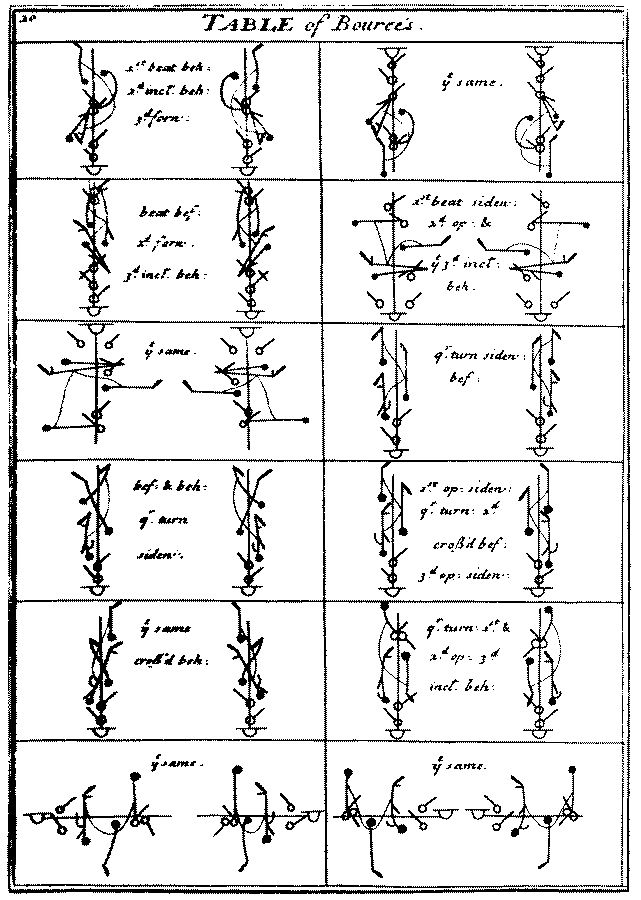 20
TABLE of Bouree's.
1st beat beh:
2d incl. beh:
3d forw:
ye same.
beat bef:
2d forw.
3d incl. beh:
1st beat siden:
2d op: &
ye 3d incl:
beh.
ye same.
qr. turn siden:
bef:
bef: & beh:
qr. turn
siden:
1st op: siden:
qr. turn: 2d
croß'd bef:
3d op: siden:
ye same
croß'd beh:
qr. turn: 1st &
2d op: 3d
incl. beh:
ye same.
ye same.